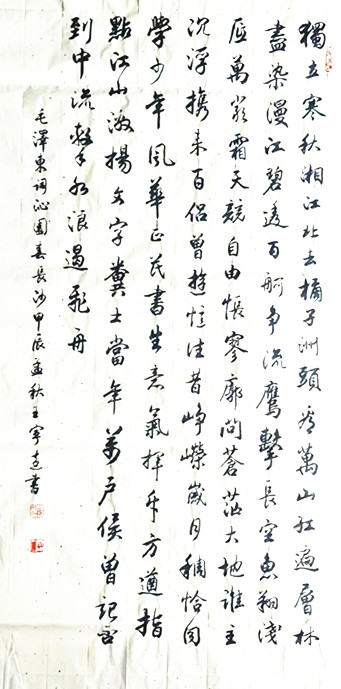 獨立寒秋湘江北去橘子洲頭看萬山紅遍層林
盡染漫江碧透百舸争流鷹擊長空魚翔淺
底萬類霜天競自由悵寥廓問蒼茫大地誰主
沉浮携來百侶曾遊憶往昔崢嶸歲月稠恰同
學少年風華正茂書生意氣揮斥方遒指
點江山激揚文字糞土當年萬户侯曾記否
到中流擊水浪遏飛舟
毛澤東詞沁園春長沙甲辰孟秋王書